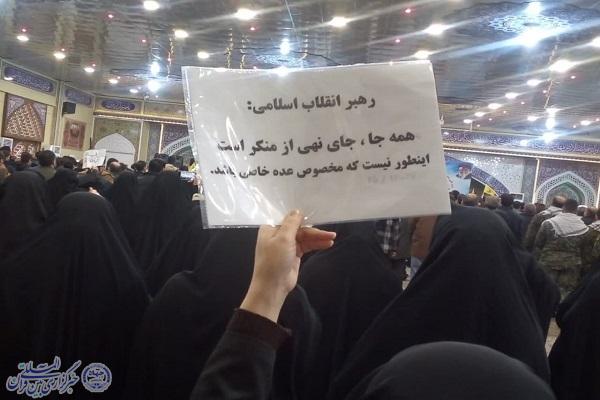 رهبر انقلاب اسلامی:
همه جا، جای نهی از منکر است
اینطور نیست که مخصوص عده خاصی باشد.
خبرگزاری بین‌المللی قرآن